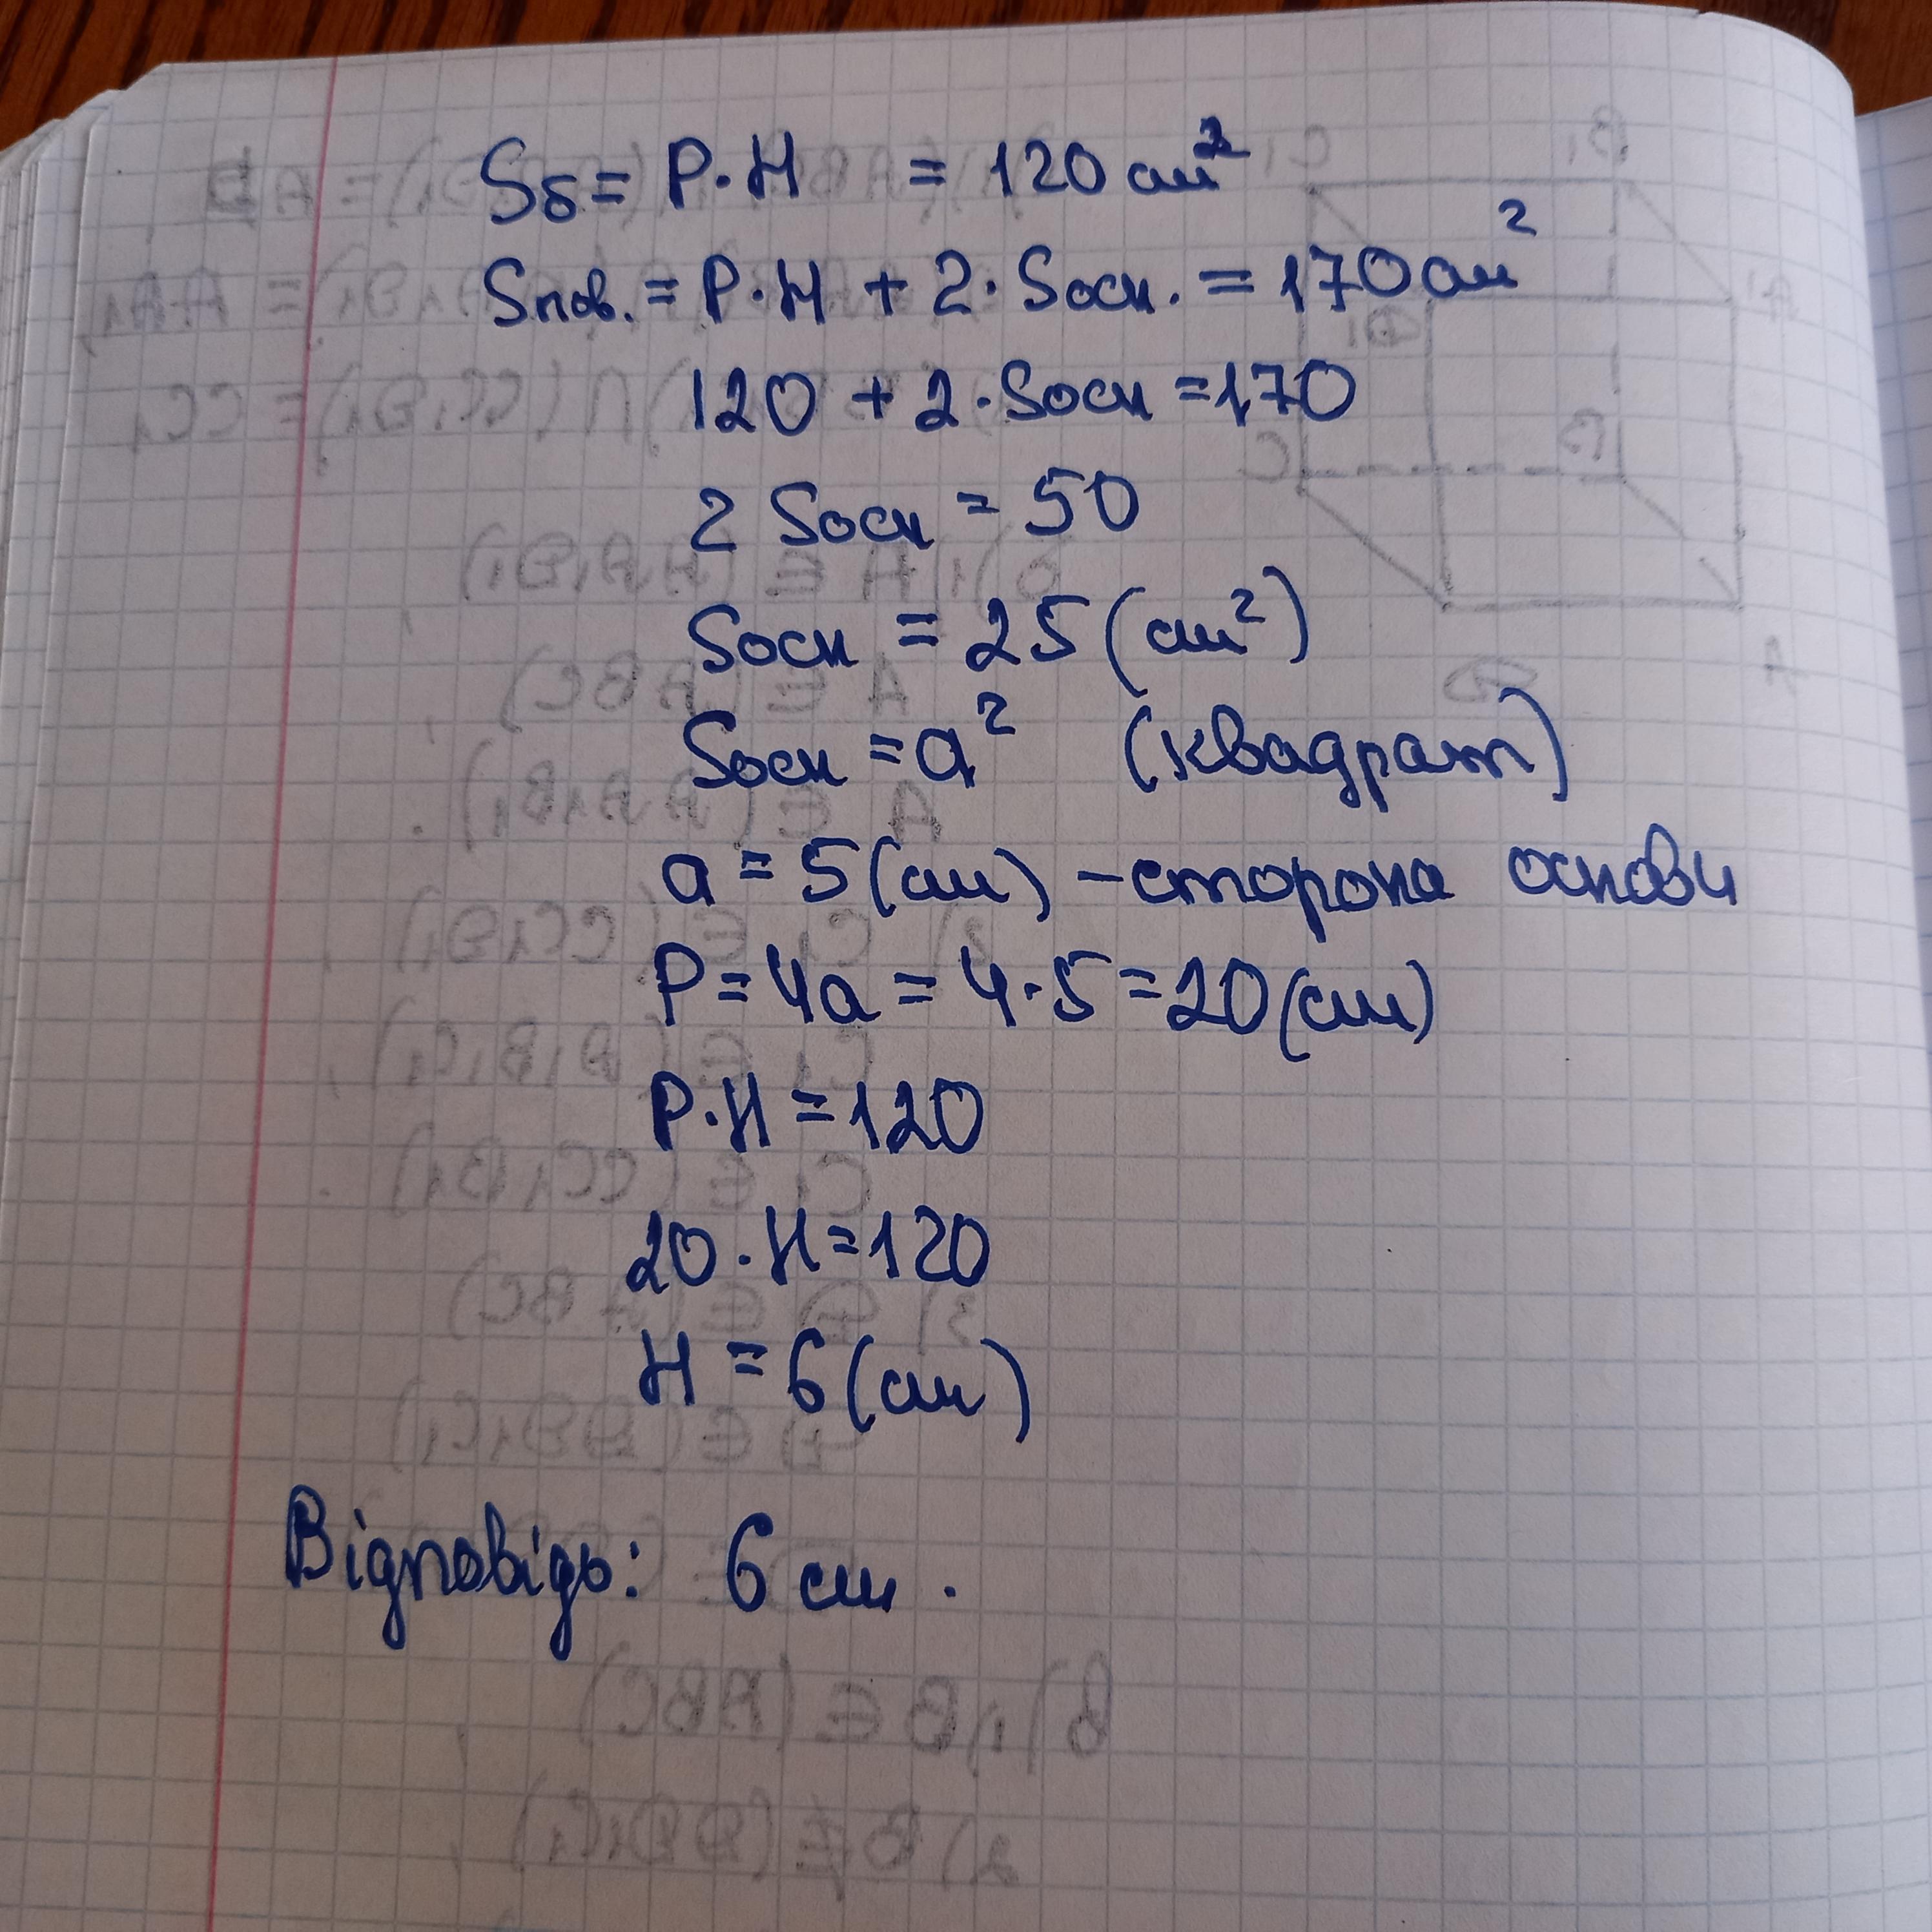 Sб = P·H = 120 см²
Sпов. = P·H + 2·Sосн. = 170 см²
120 + 2·Sосн = 170
2 Sосн = 50
Sосн = 25 (см²)
Sосн = a² (квадрат)
a = 5 (см) – сторона основи
P = 4a = 4·5 = 20 (см)
P·H = 120
20·H = 120
H = 6 (см)
Відповідь: 6 см.